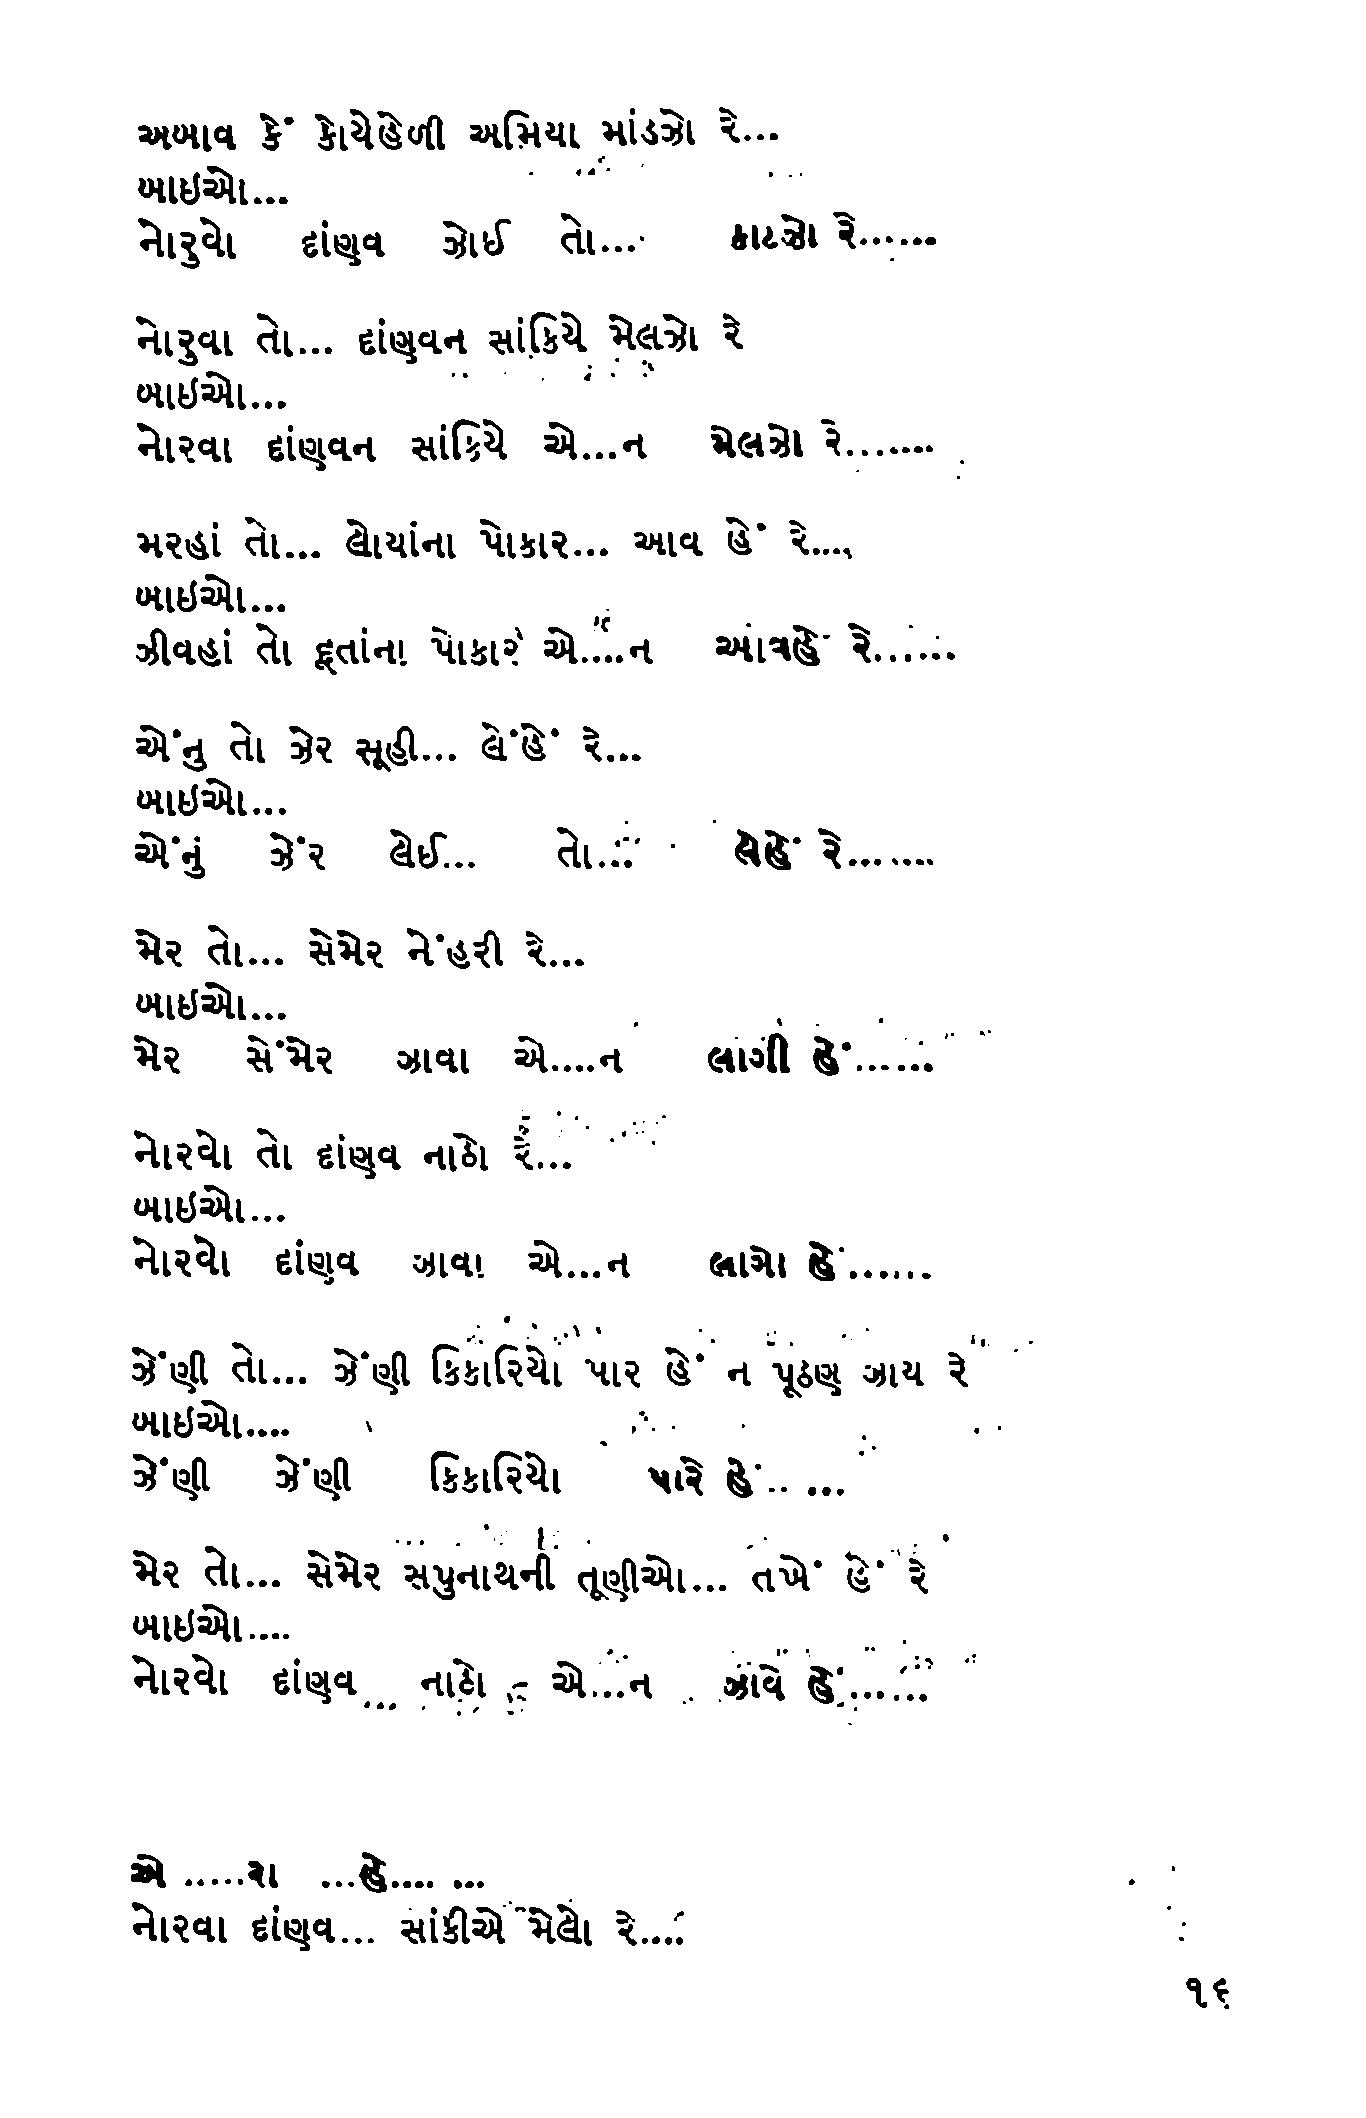 અબાવ કેં કોયેહેળી અમિયા માંડઝો રે...
બાઇઓ...
નોરુવો દાંણવ ઝોઈ તો... કાટઝો રે......
નોરુવા તો... દાંણવન સાંકિયે મેલઝો રે
બાઇઓ...
નોરવા દાંણવન સાંકિયે એ...ન મેલઝો રે.......
મરહાં તો... લોયાંના પોકાર... આવ હેં રે....
બાઇઓ...
ઝીવહાં તો દૂતાંના પોકાર એ....ન આવહેં રે......
એંનુ તો ઝેર સૂહી... લેંહેં રે...
બાઇઓ...
એંનું ઝેંર લેઈ... તો... લેહેં રે.......
મેર તો... સેમેર નેંહરી રે...
બાઇઓ...
મેર સેંમેર ઝાવા એ....ન લાગી હેં......
નોરવો તો દાંણવ નાઠો રે...
બાઇઓ...
નોરવો દાંણવ ઝાવા એ...ન લાગો હેં......
ઝેંણી તો... ઝેંણી કિકારિયો પાર હેં ન પૂઠણ ઝાય રે
બાઇઓ....
ઝેંણી ઝેંણી કિકારિયો પારે હેં.. ...
મેર તો... સેમેર સપુનાથની તૂણીઓ... તખેં હેં રે
બાઇઓ....
નોરવો દાંણવ... નાઠો એ...ન ઝાવે હેં......
એ .....રા ...હે.... ...
નોરવા દાંણવ... સાંકીએ મેલો રે....
૧૬